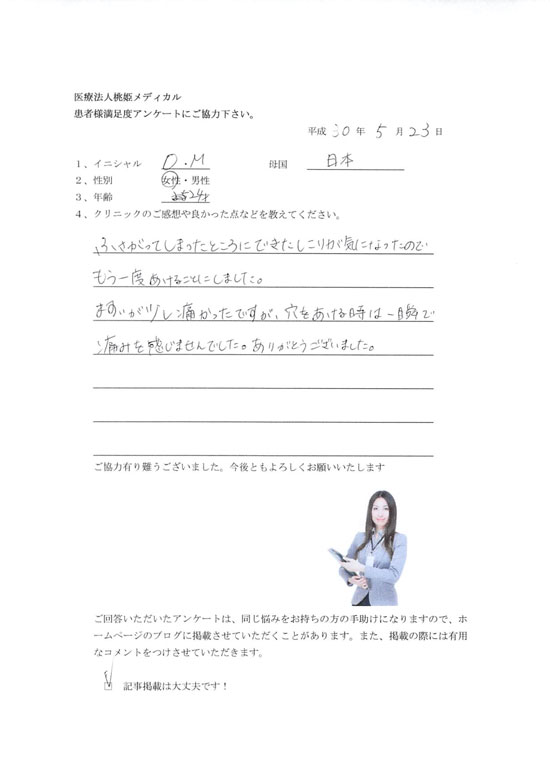 医療法人桃姫メディカル
患者様満足度アンケートにご協力下さい。
平成 30 年 5 月 23 日
1、イニシャル D・M 母国 日本
2、性別 女性・男性
3、年齢 24才
4、クリニックのご感想や良かった点などを教えてください。
ふさがってしまったところにできたしこりが気になったので
もう一度あけることにしました。
ますいが少し痛かったですが、穴をあける時は一瞬で
痛みを感じませんでした。ありがとうございました。
ご協力有り難うございました。今後ともよろしくお願いいたします
ご回答いただいたアンケートは、同じ悩みをお持ちの方の手助けになりますので、ホ
ームページのブログに掲載させていただくことがあります。また、掲載の際には有用
なコメントをつけさせていただきます。
記事掲載は大丈夫です！